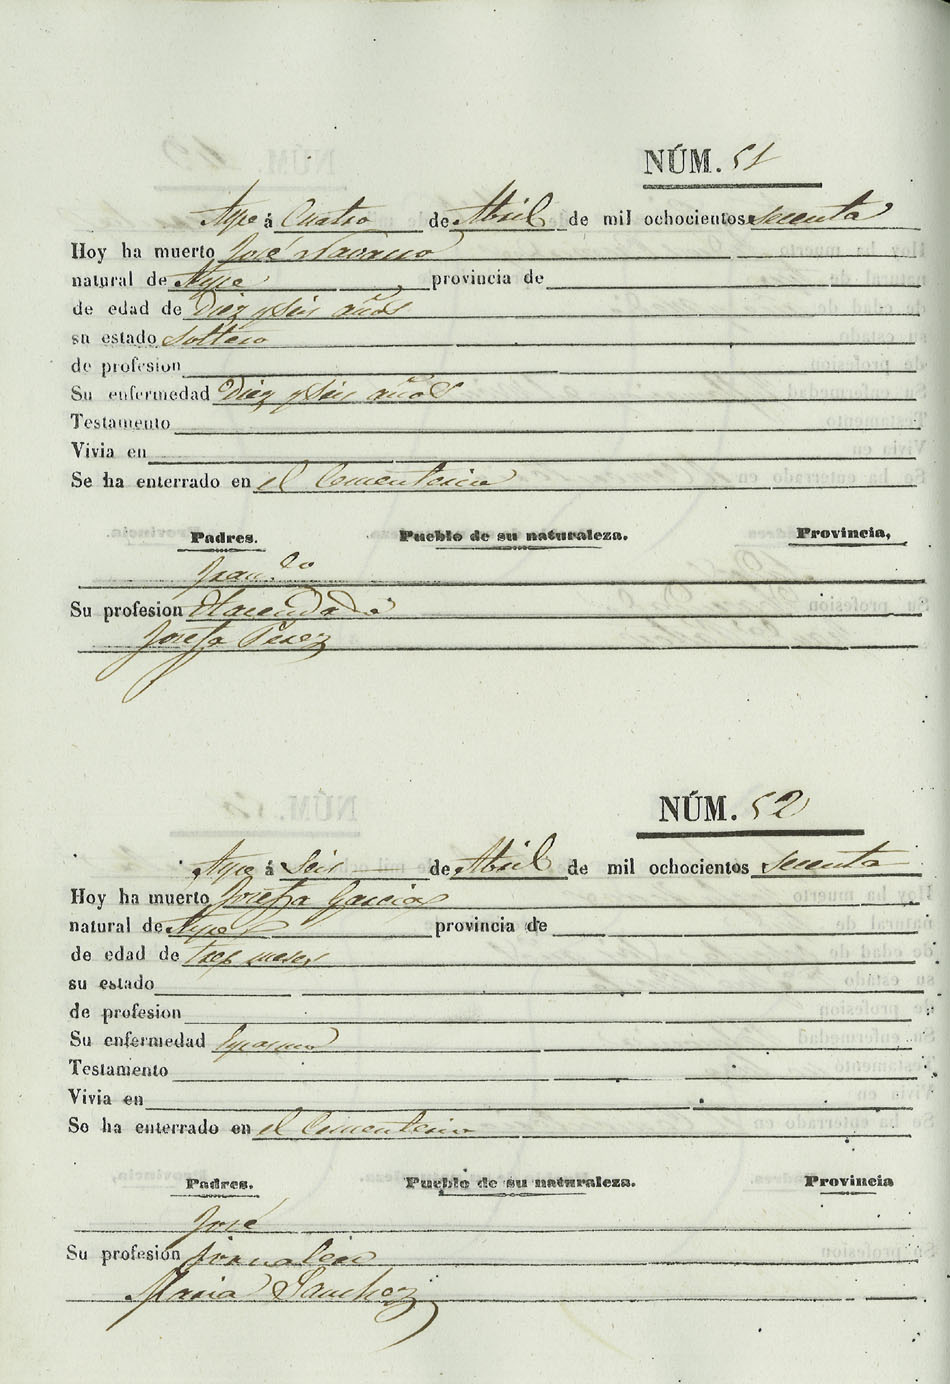 NÚM. 51
Aspe á Cuatro de Abril de mil ochocientos sesenta
Hoy ha muerto José Navarro
natural de Aspe provincia de
de edad de Diez y seis años
su estado Soltero
de profesion
Su enfermedad Diez y seis años
Testamento
Vivia en
Se ha enterrado en el Cementerio
Padres. Pueblo de su naturaleza. Provincia,
Fran.co
Su profesion Hacendado
Josefa Perez
NÚM. 52
Aspe á Seis de Abril de mil ochocientos sesenta
Hoy ha muerto Josefa Garcia
natural de Aspe provincia de
de edad de tres meses
su estado
de profesion
Su enfermedad Espasmo
Testamento
Vivia en
Se ha enterrado en el Cementerio
Padres. Pueblo de su naturaleza. Provincia
José
Su profesion Jornalero
Maria Sanchez